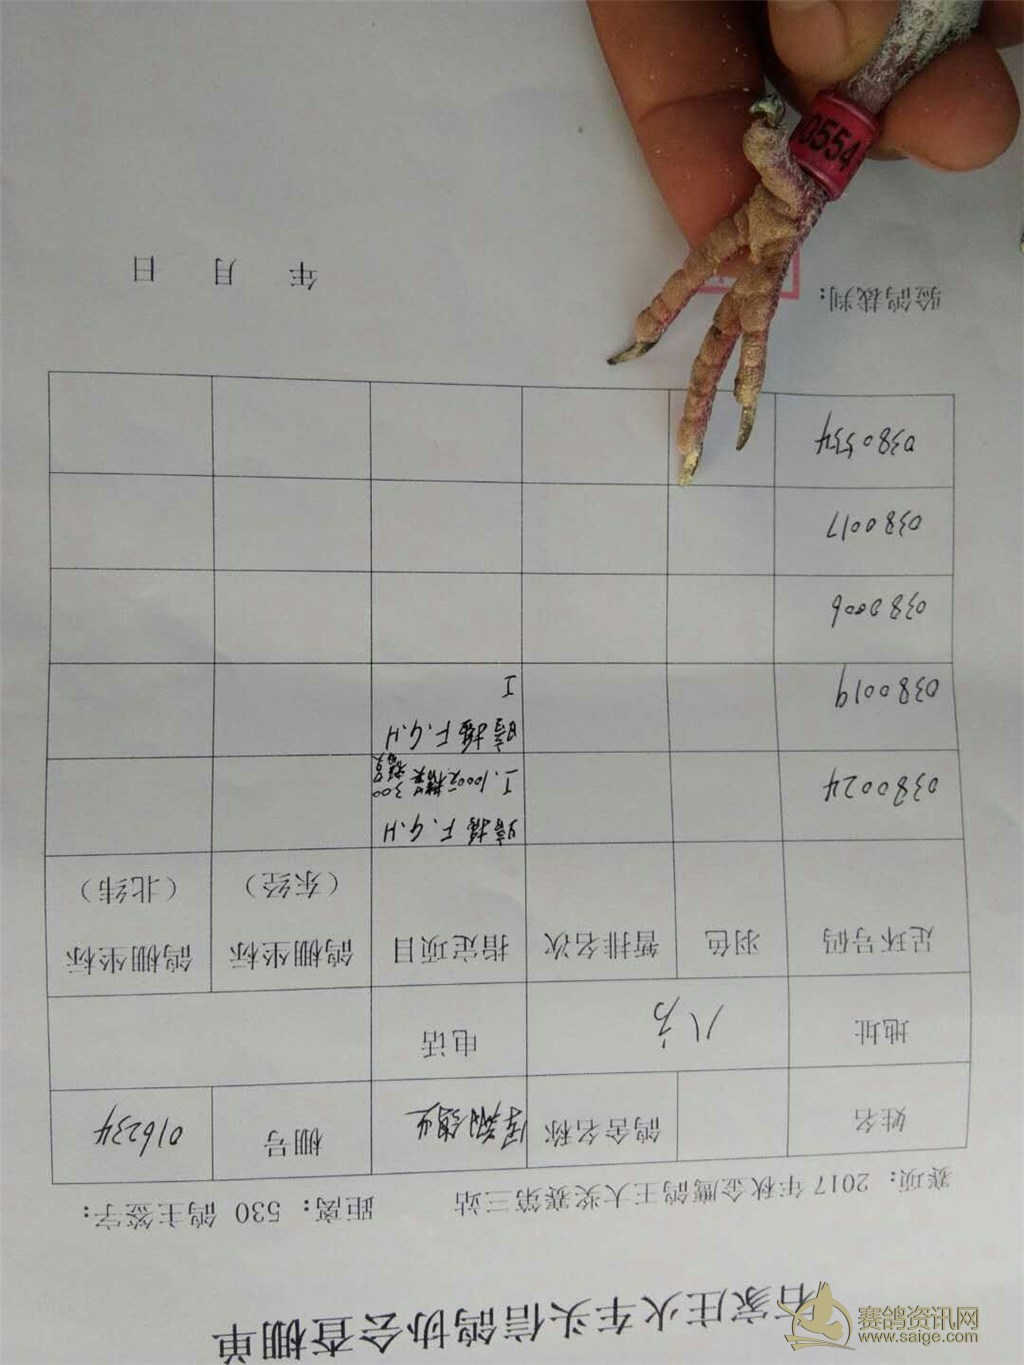 石家庄火车头信鸽协会查棚单
赛项：2017年秋金鹰鸽王大奖赛第三站 距离：530 鸽主签字：
姓名 鸽舍名称 翔鸽业 棚号 016234
地址 八方 电话
足环号码 羽色 暂排名次 指定项目 鸽棚坐标（东经） 鸽棚坐标（北纬）
0380024 暗插 F.G.H
I.1000元精英 300
0380019 暗插 F.G.H
I
0380006
0380017
0380554
验鸽裁判：
年 月 日
0554
赛鸽资讯网
www.saige.com